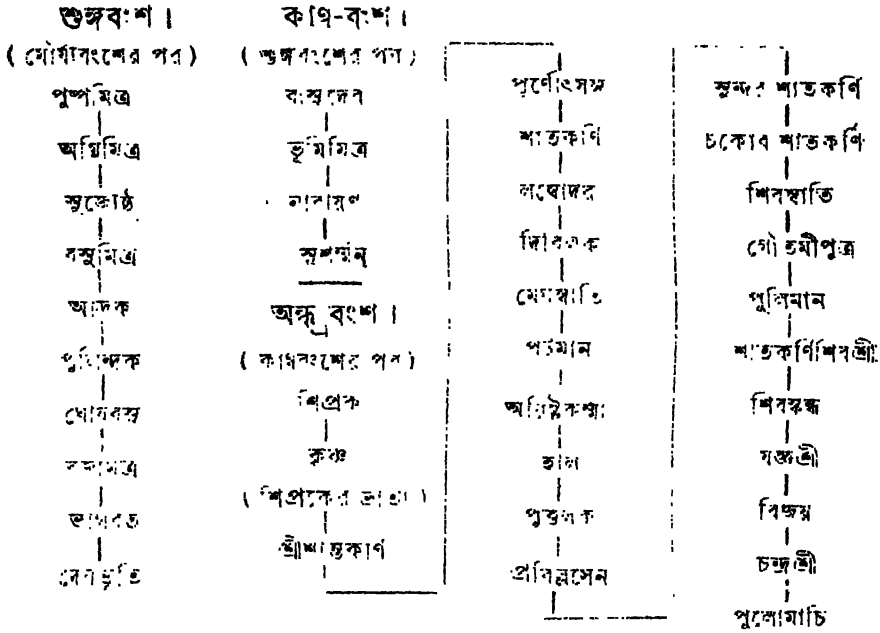 শুঙ্গবংশ।
(মৌর্য্যবংশের পর)
পুষ্পমিত্র
অগ্নিমিত্র
সুজ্যেষ্ঠ
বসুমিত্র
আর্দ্রক
পুলিন্দক
ঘোষবসু
বজ্রমিত্র
ভাগবত
দেবভূতি
কাণ্ব-বংশ।
(শুঙ্গবংশের পর)
বাসুদেব
ভূমিমিত্র
নারায়ণ
সুশর্ম্মন্
অন্ধ্রবংশ।
(কাণ্ববংশের পর)
শিপ্রক
কৃষ্ণ
(শিপ্রকের ভ্রাতা)
শ্রীশাতকর্ণি
পূর্ণোৎসঙ্গ
শাতকর্ণি
লম্বোদর
দিবিলক
মেঘস্বাতি
পটমান
অরিষ্টকর্ম্মা
হাল
পুত্তলক
প্রবিল্লসেন
সুন্দর শাতকর্ণি
চকোর শাতকর্ণি
শিবস্বাতি
গৌতমীপুত্র
পুলিমান
শাতকর্ণিশিবশ্রী
শিবস্কন্ধ
যজ্ঞশ্রী
বিজয়
চন্দ্রশ্রী
পুলোমাচি